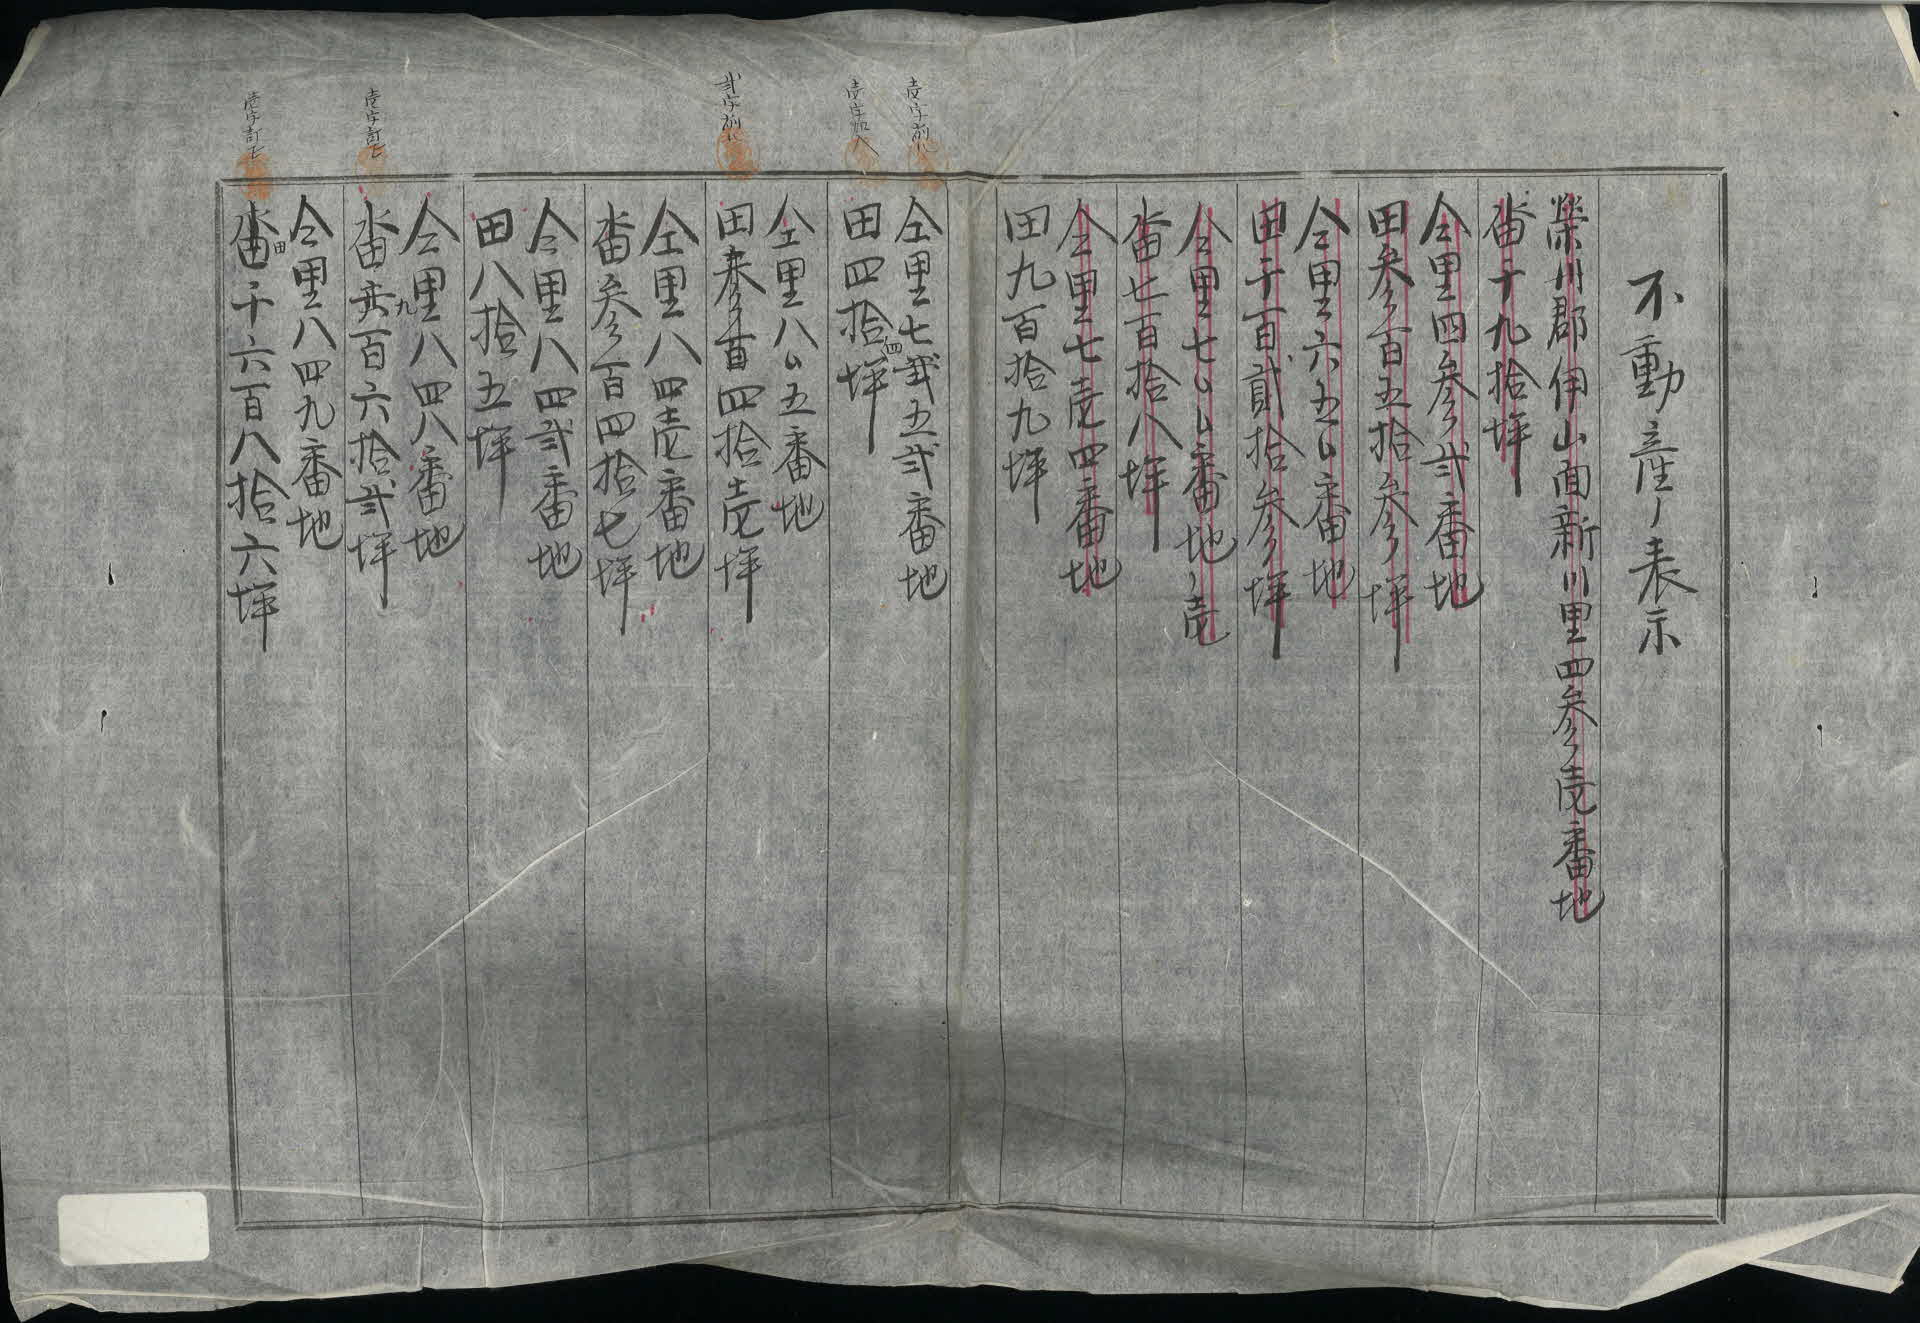 不動産ノ表示
榮州郡伊山面新川里四参壱番地
畓千九拾坪
仝里四参弐番地
田参百五拾参坪
仝里六五〇番地
田千百貳拾参坪
仝里七〇〇番地ノ壱
畓七百拾八坪
仝里七壱四番地
田九百拾九坪
壱字削除
仝里七弐五弐番地
壱字加入
田四拾四坪
仝里八〇五番地
弐字削除
田参百四拾壱坪
仝里八四壱番地
畓参百四拾七坪
仝里八四弐番地
田八拾五坪
仝里八四八番地
壱字訂正
畓九百六拾弐坪
仝里八四九番地
壱字訂正
田千六百八拾六坪